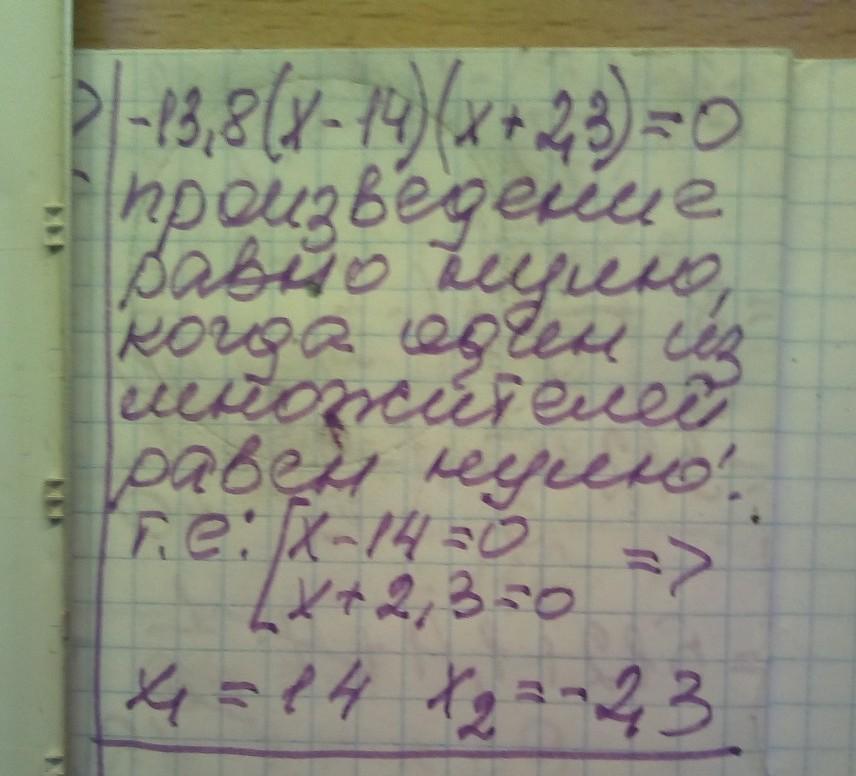 -13,8(x-14)(x+2,3)=0
произведение
равно нулю,
когда один из
множителей
равен нулю!
т.е: [x-14=0
x+2,3=0 =>
x₁ = 14 x₂ = -2,3